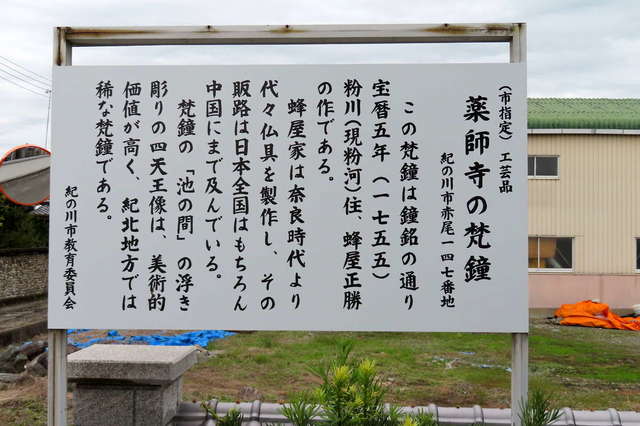 （市指定）工芸品
薬師寺の梵鐘
紀の川市赤尾一四七番地
この梵鐘は鐘銘の通り
宝暦五年（一七五五）
粉川（現粉河）住、蜂屋正勝
の作である。
蜂屋家は奈良時代より
代々仏具を製作し、その
販路は日本全国はもちろん
中国にまで及んでいる。
梵鐘の「池の間」の浮き
彫りの四天王像は、美術的
価値が高く、紀北地方では
稀な梵鐘である。
紀の川市教育委員会